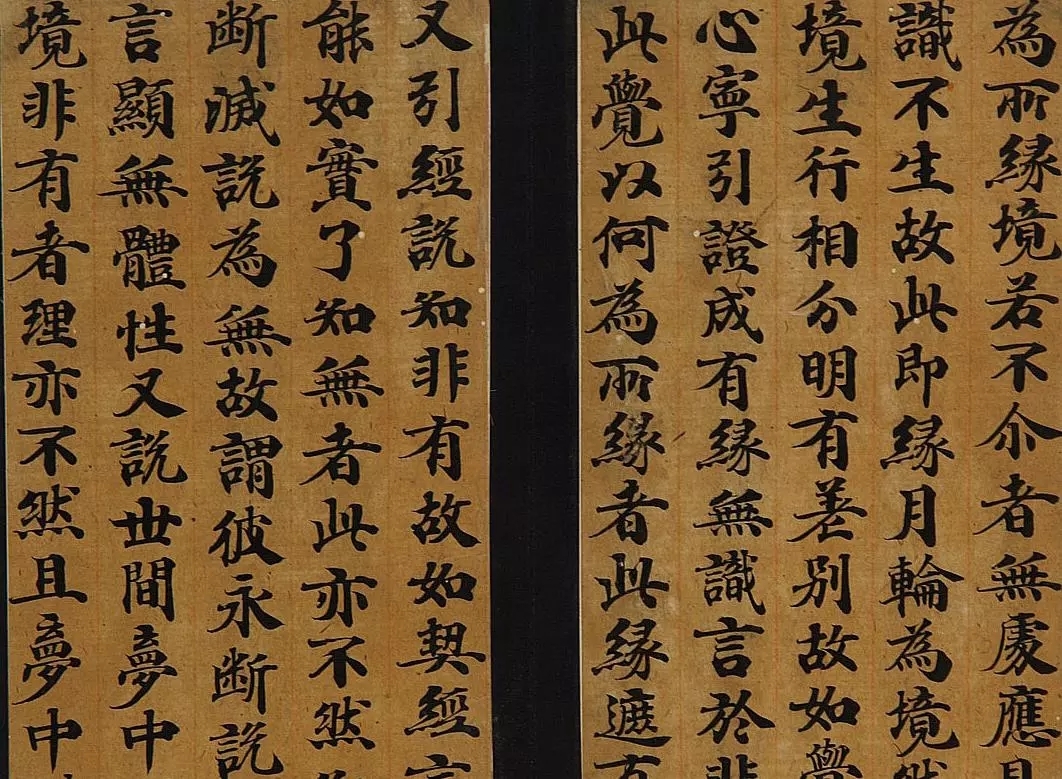 為所緣境若不尒者無處應
識不生故此即緣月輪為境
境生行相分明有差別故如覺
心寧引證成有緣無識言於非
此覺以何為所緣者此緣遮方
又引經說知非有故如契經言
能如實了知無者此亦不然
斷滅說為無故謂彼永斷說
言顯無體性又說世間夢中
境非有者理亦不然且夢中